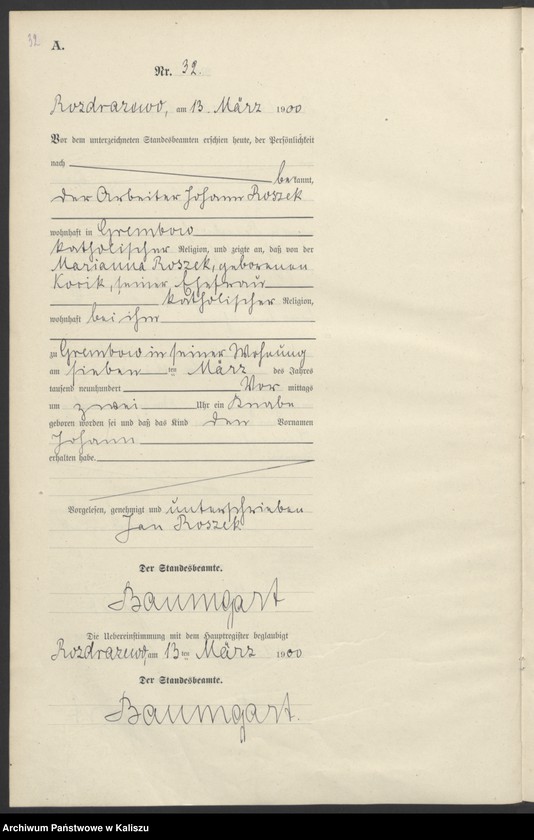 32.
A.
Nr. 32.
Rozdrazewo, am 13. März 1900
Vor dem unterzeichneten Standesbeamten erschien heute, der Persönlichkeit
nach
bekannt,
der Arbeiter Johann Roszek
wohnhaft in Grembow
katholischer Religion, und zeigte an, daß von der
Marianna Roszek, geborenen
Kocik, seiner Ehefrau
katholischer Religion,
wohnhaft bei ihm
zu Grembow in seiner Wohnung
am sieben ten März des Jahres
tausend neunhundert Vor mittags
um zwei Uhr ein Knabe
geboren worden sei und daß das Kind den Vornamen
Johann
erhalten habe.
Vorgelesen, genehmigt und unterschrieben
Jan Roszek
Der Standesbeamte.
Baumgart
Die Uebereinstimmung mit dem Hauptregister beglaubigt
Rozdrazewo, am 13ten März 1900
Der Standesbeamte.
Baumgart.
Archiwum Państwowe w Kaliszu